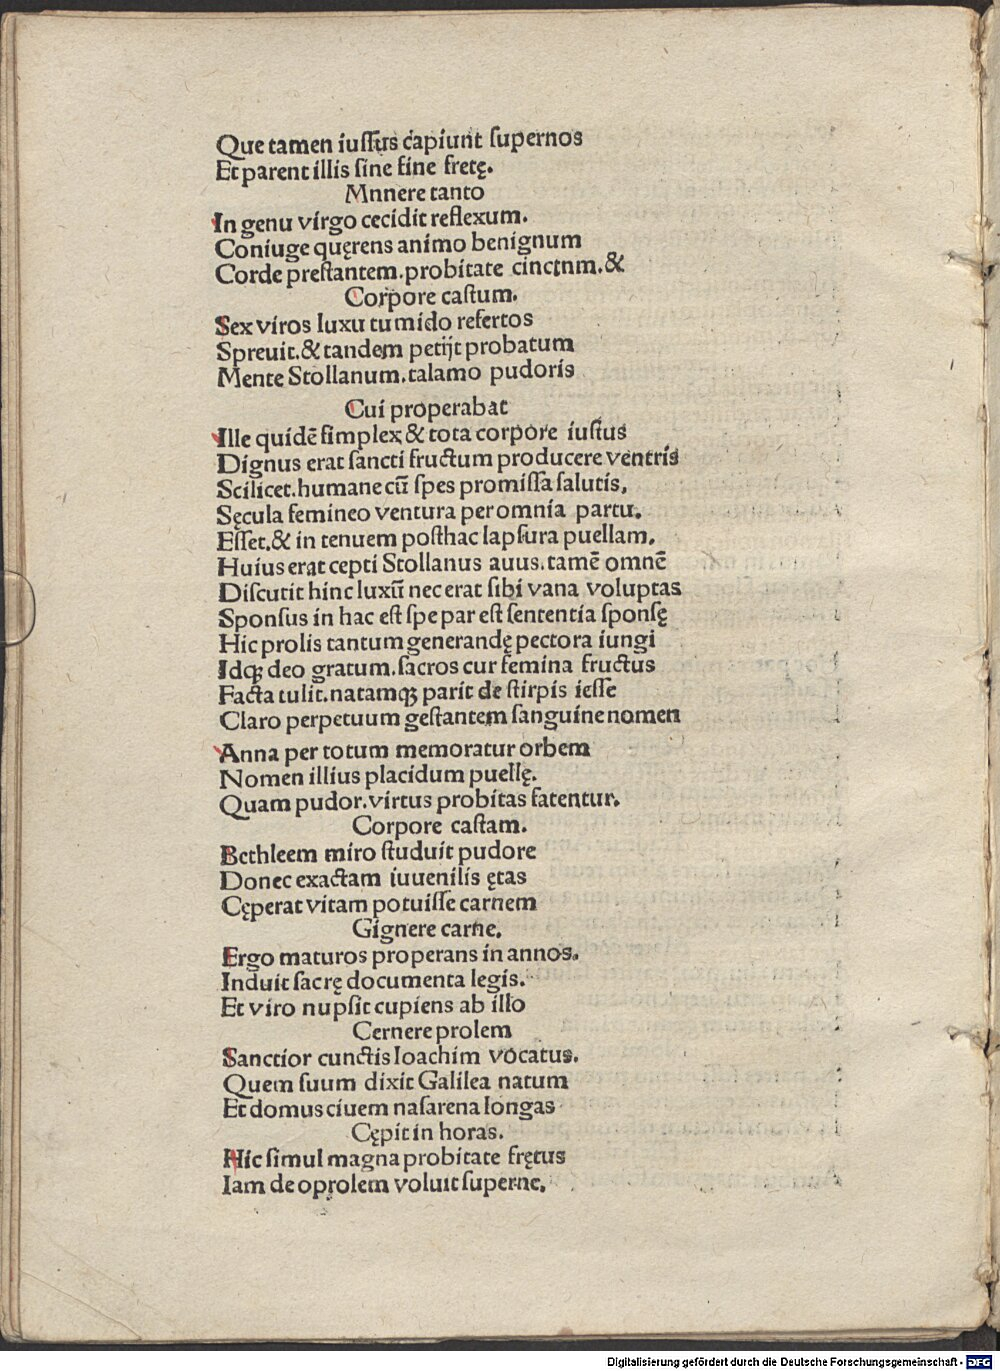 Que tamen iuſſus capiunt ſupernos
Et parent illis ſine fine fretę.
Mnnere tanto
In genu virgo cecidit reflexum.
Coniuge quęrens animo benignum
Corde preſtantem.probitate cinctnm.&
Corpore caſtum.
Sex viros luxu tumido refertos
Spreuit.& tandem petijt probatum
Mente Stollanum.talamo pudoris
Cui properabat
Ille quidē ſimplex & tota corpore iuſtus
Dignus erat ſancti fructum producere ventris
Scilicet.humane cū ſpes promiſſa ſalutis,
Sęcula femineo ventura per omnia partu.
Eſſet.& in tenuem poſthac lapſura puellam.
Huius erat cepti Stollanus auus.tamē omnē
Diſcutit hinc luxū nec erat ſibi vana voluptas
Sponſus in hac eſt ſpe par eſt ſententia ſponſę
Hic prolis tantum generandę pectora iungi
Idqꝫ deo gratum.ſacros cur femina fructus
Facta tulit.natamqꝫ parit de ſtirpis ieſſe
Claro perpetuum geſtantem ſanguine nomen
Anna per totum memoratur orbem
Nomen illius placidum puellę.
Quam pudor.virtus probitas fatentur.
Corpore caſtam.
Bethleem miro ſtuduit pudore
Donec exactam iuuenilis ętas
Cęperat vitam potuiſſe carnem
Gignere carne.
Ergo maturos properans in annos.
Induit ſacrę documenta legis.
Et viro nupſit cupiens ab illo
Cernere prolem
Sanctior cunctis Ioachim vocatus.
Quem ſuum dixit Galilea natum
Et domus ciuem naſarena longas
Cępit in horas.
Hic ſimul magna probitate frętus
Iam de oprolem voluit ſuperne.
Digitalisierung gefördert durch die Deutsche Forschungsgemeinschaft - DFG